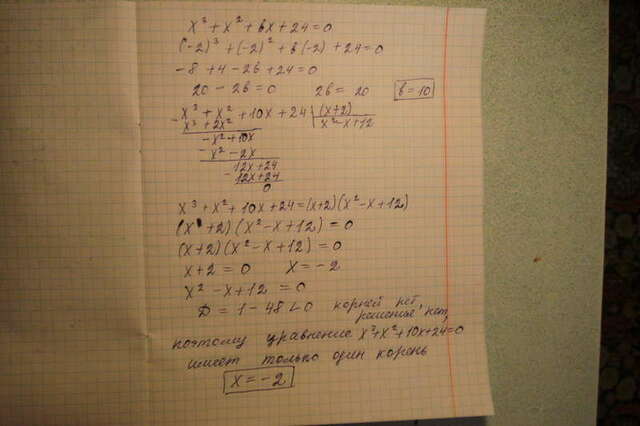 x³ + x² + bx + 24 = 0
(-2)³ + (-2)² + b(-2) + 24 = 0
-8 + 4 - 2b + 24 = 0
20 - 2b = 0 2b = 20 b = 10
x³ + x² + 10x + 24 | (x+2)
- x³ + 2x² x² - x + 12
-x² + 10x
- x² - 2x
12x + 24
- 12x + 24
0
x³ + x² + 10x + 24 = (x+2)(x² - x + 12)
(x + 2)(x² - x + 12) = 0
(x + 2)(x² - x + 12) = 0
x + 2 = 0 x = -2
x² - x + 12 = 0
D = 1 - 48 < 0 корней нет,
решения нет,
поэтому уравнение x³+x²+10x+24=0
имеет только один корень
x = -2